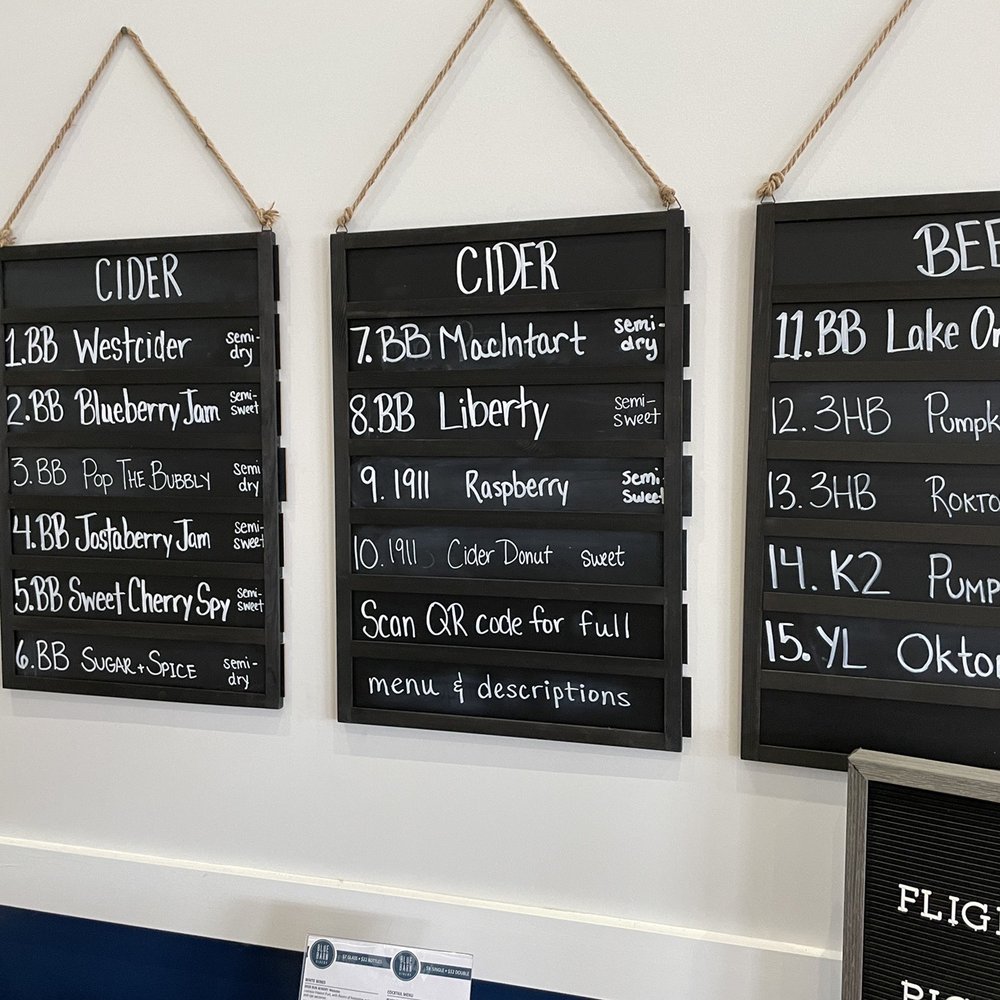 CIDER
1.BB Westcider semi-dry
2.BB Blueberry Jam semi-sweet
3.BB POP THE BUBBLY semi dry
4.BB Jostaberry Jam semi-sweet
5.BB Sweet Cherry Spy semi-sweet
6.BB SUGAR + SPICE semi-dry
CIDER
7.BB MacIntart semi-dry
8.BB Liberty semi-sweet
9.1911 Raspberry semi sweet
10.1911 Cider Donut sweet
Scan QR code for full
menu & descriptions
BEE
11.BB Lake On
12.3HB Pumpk
13.3HB ROKTO
14.K2 PUMP
15.YL Oktor
FLIG
BLUE BARN CIDERY
$7 GLASS • $22 BOTTLES
BLUE BARN CIDERY
WHITE WINES
COCKTAIL MENU